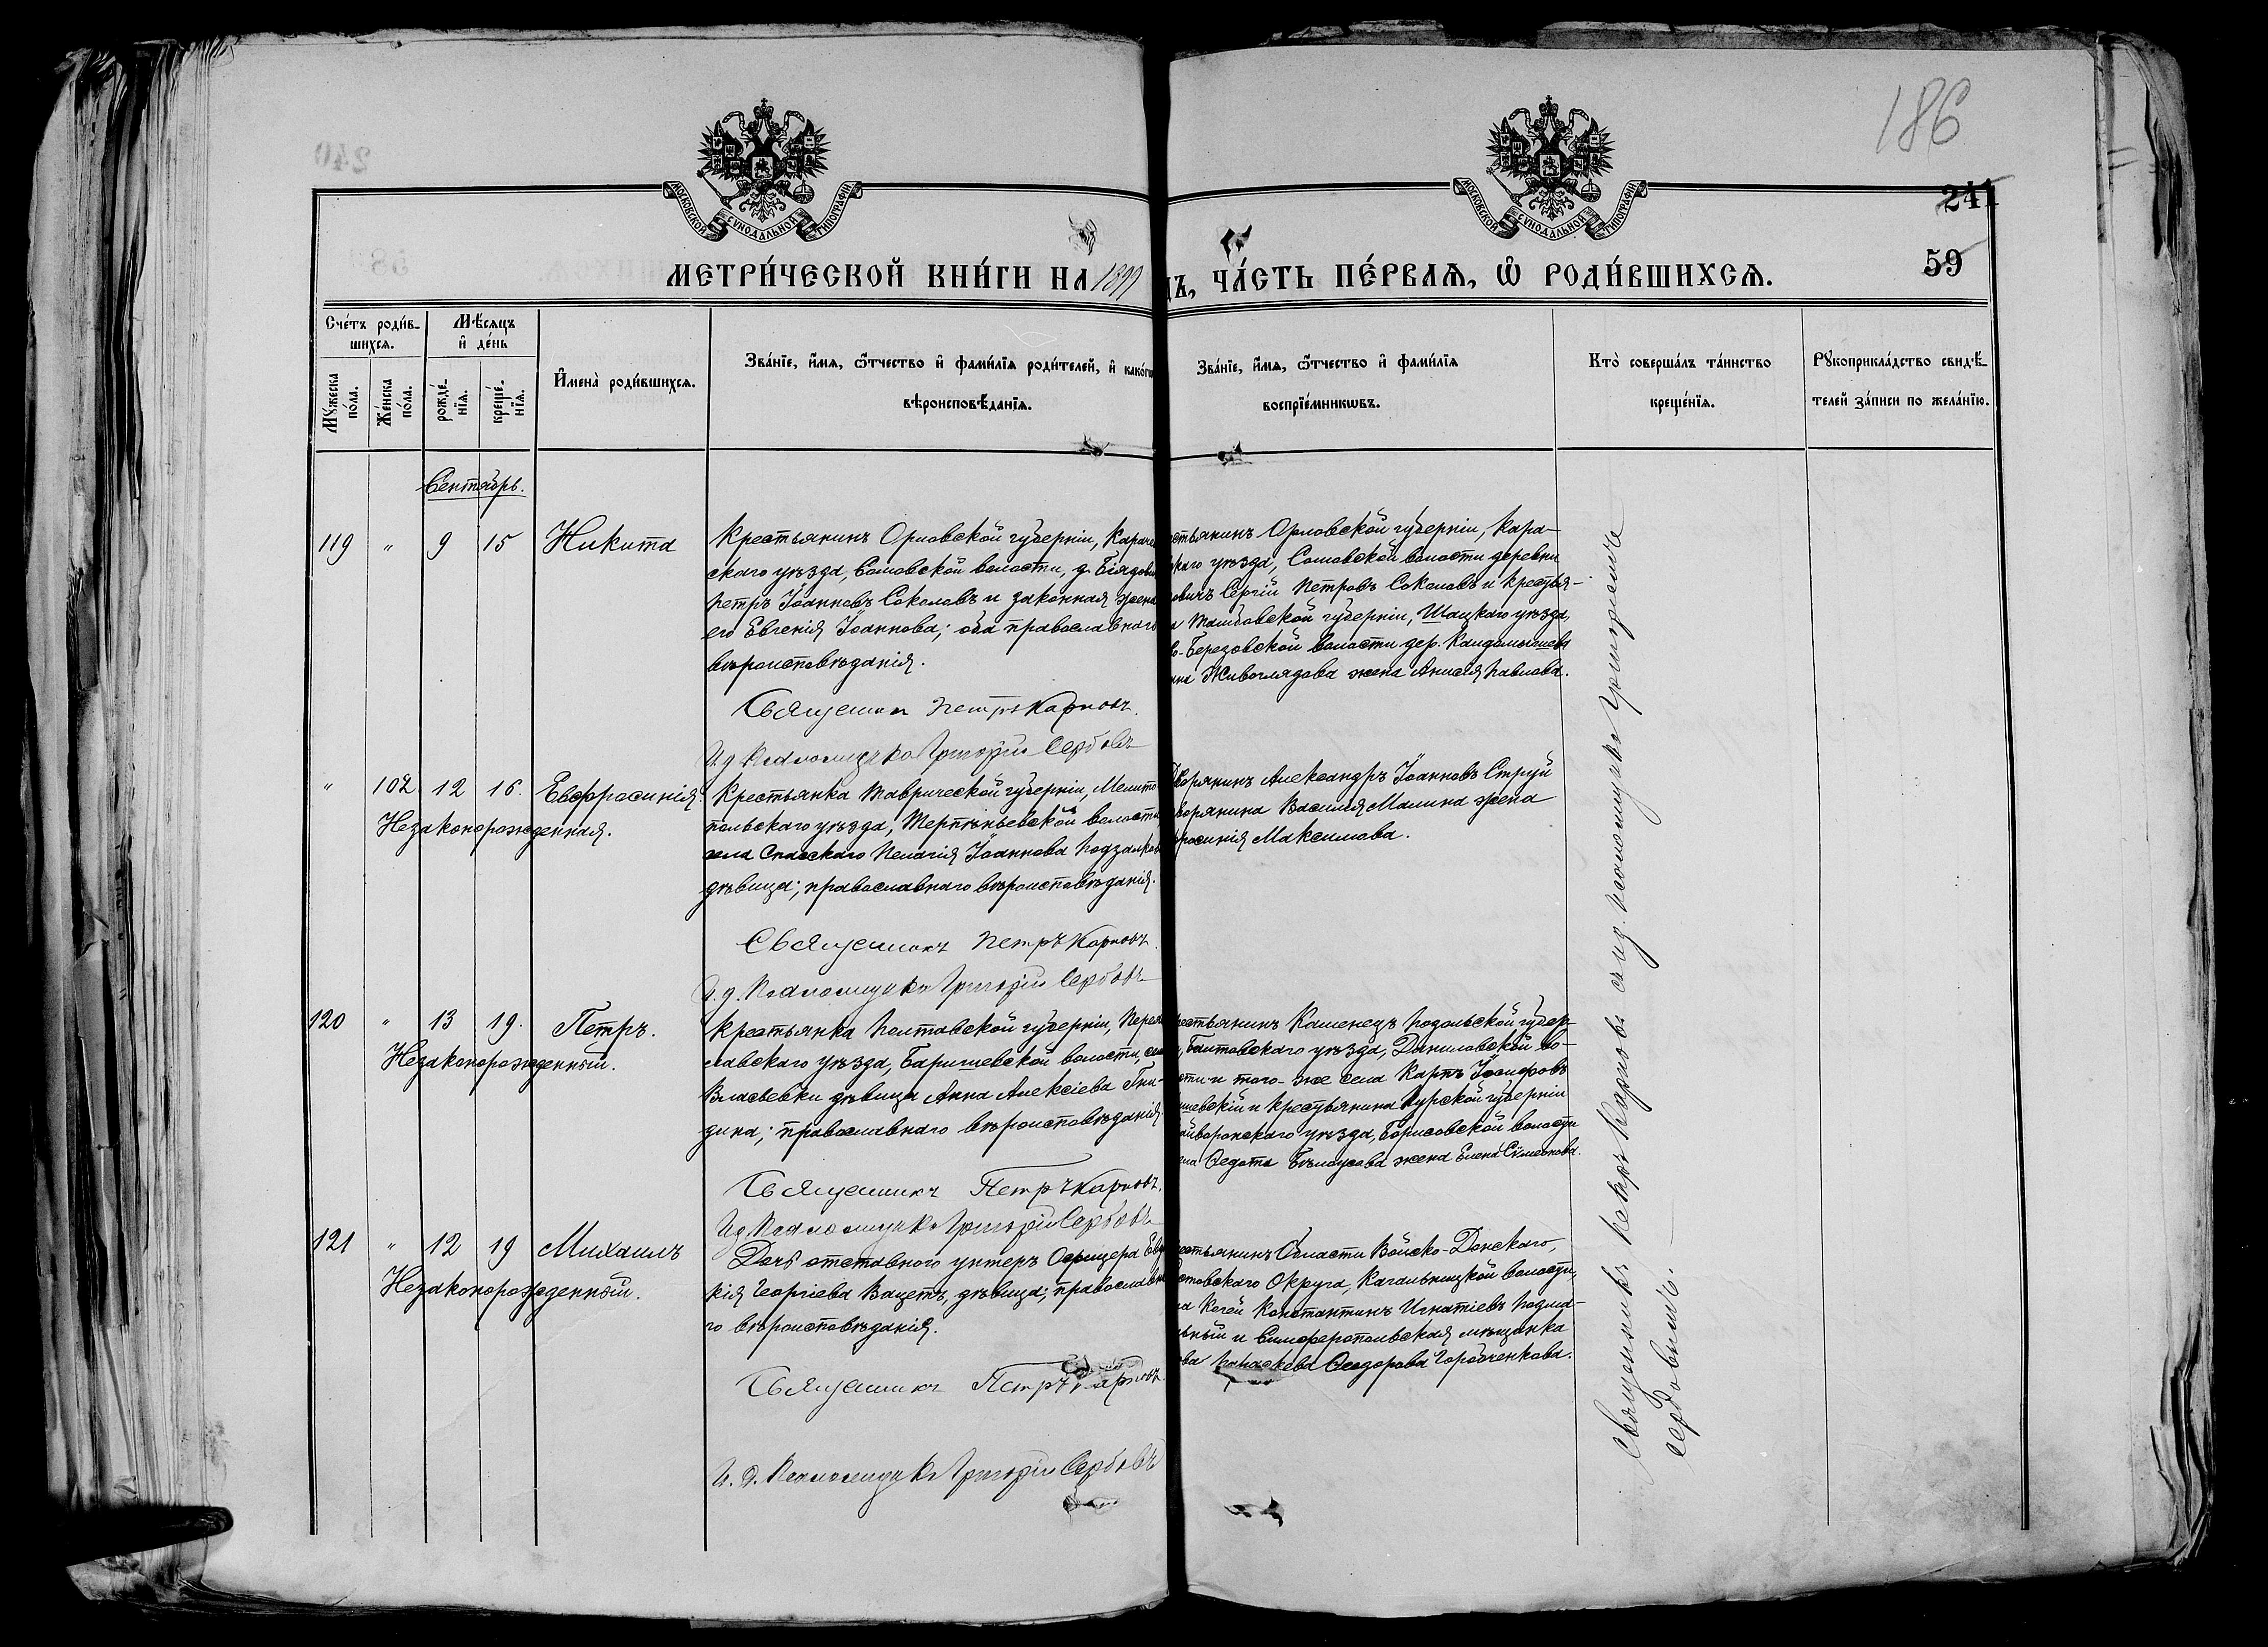 186
241
59
МОСКОВСКОЙ СѴНОДАЛЬНОЙ ТИПОГРАФІИ
МОСКОВСКОЙ СѴНОДАЛЬНОЙ ТИПОГРАФІИ
МЕТРИ́ЧЕСКОЙ КНИ́ГИ НА 1899
ДЪ, ЧА́СТЬ ПЕ́РВАѦ, Ѡ҆ РОДИ́ВШИХСѦ.
Сче́тъ роди́в-
шихсѧ.
Мꙋ́жеска по́ла.
Же́нска по́ла.
Мѣ́сѧцъ
и҆ де́нь
рожде́-
нїѧ.
креще́-
нїѧ.
И҆мена̀ роди́вшихсѧ.
Зва́нїе, и҆́мѧ, ѻ҆́тчество и҆ фами́лїѧ роди́телей, и҆ како́гѡ
вѣроисповѣ́данїѧ.
Зва́нїе, и҆́мѧ, ѻ҆́тчество и҆ фами́лїѧ
воспрїе́мникѡвъ.
Кто̀ соверша́лъ та́инство
креще́нїѧ.
Рꙋкоприкла́дство свидѣ́-
телей за́писи по жела́нїю.
Сентябрь.
119 " 9 15 Никита
Крестьянинъ Орловской губерніи, Караче
скаго уѣзда, Сомовской волости, д.
Петръ Іоанновъ Соколовъ и законная жена
его Евгенія Іоаннова; оба православнаго
вѣроисповѣданія.
Священник Петръ Карповъ
И. д. Псаломщика Григорій Сербовъ
стьянинъ Орловской губерніи, Кара-
скаго уѣзда, Сомовской волости деревни
овичъ Сергій Петровъ Соколовъ и крестья-
Тамбовской губерніи, Шацкаго уѣзда,
о-Березовской волости дер.
Живоглядова жена Анисія Павлова.
" 102 12 16. Евфросинія.
Незаконорожденная.
Крестьянка Таврической губерніи, Мелито
польскаго уѣзда, Терпѣньевской волости
села Спасскаго Пелагія Іоаннова
дѣвица; православнаго вѣроисповѣданія.
Священникъ Петръ Карповъ
И. д. Псаломщика Григорій Сербовъ
Дворянинъ Александръ Іоанновъ Струй
ворянина Василія Малина жена
фросинія Максимова.
120 " 13 19. Петръ.
Незаконорожденный.
Крестьянка Полтавской губерніи, Перея
славскаго уѣзда, Баришевской волости, села
Власьевки дѣвица Анна Алексіева Гни-
дина; православнаго вѣроисповѣданія
Священникъ Петръ Карповъ.
И д Псаломщика Григорій Сербовъ
рестьянинъ Каменецъ Подольской губер-
Балтовскаго уѣзда, Даниловской во-
сти и того-же села Карпъ Іосифовъ
шевскій и крестьянина Курской губерніи
айворонскаго уѣзда, Борисовской волости
Ѳедота Бѣлоусова жена Елена Сѵмеонова.
121 " 12 19 Михаилъ
Незаконорожденный.
Дочь отставного унтеръ Офицера Евдо
кія Георгіева Вацетъ, дѣвица; православна
го вѣроисповѣданія.
Священникъ Петръ Карповъ
И. д. Псаломщика Григорій Сербовъ
рестьянинъ Области Войско-Донскаго,
остовскаго Округа, Кагальницкой волости,
Константинъ Игнатіевъ Подма-
ьный и Симферопольская мѣщанка
ова Параскева Ѳеодорова Горобченкова.
Священникъ Петръ Карповъ съ и. д. псаломщика Григоріемъ
Сербовымъ.